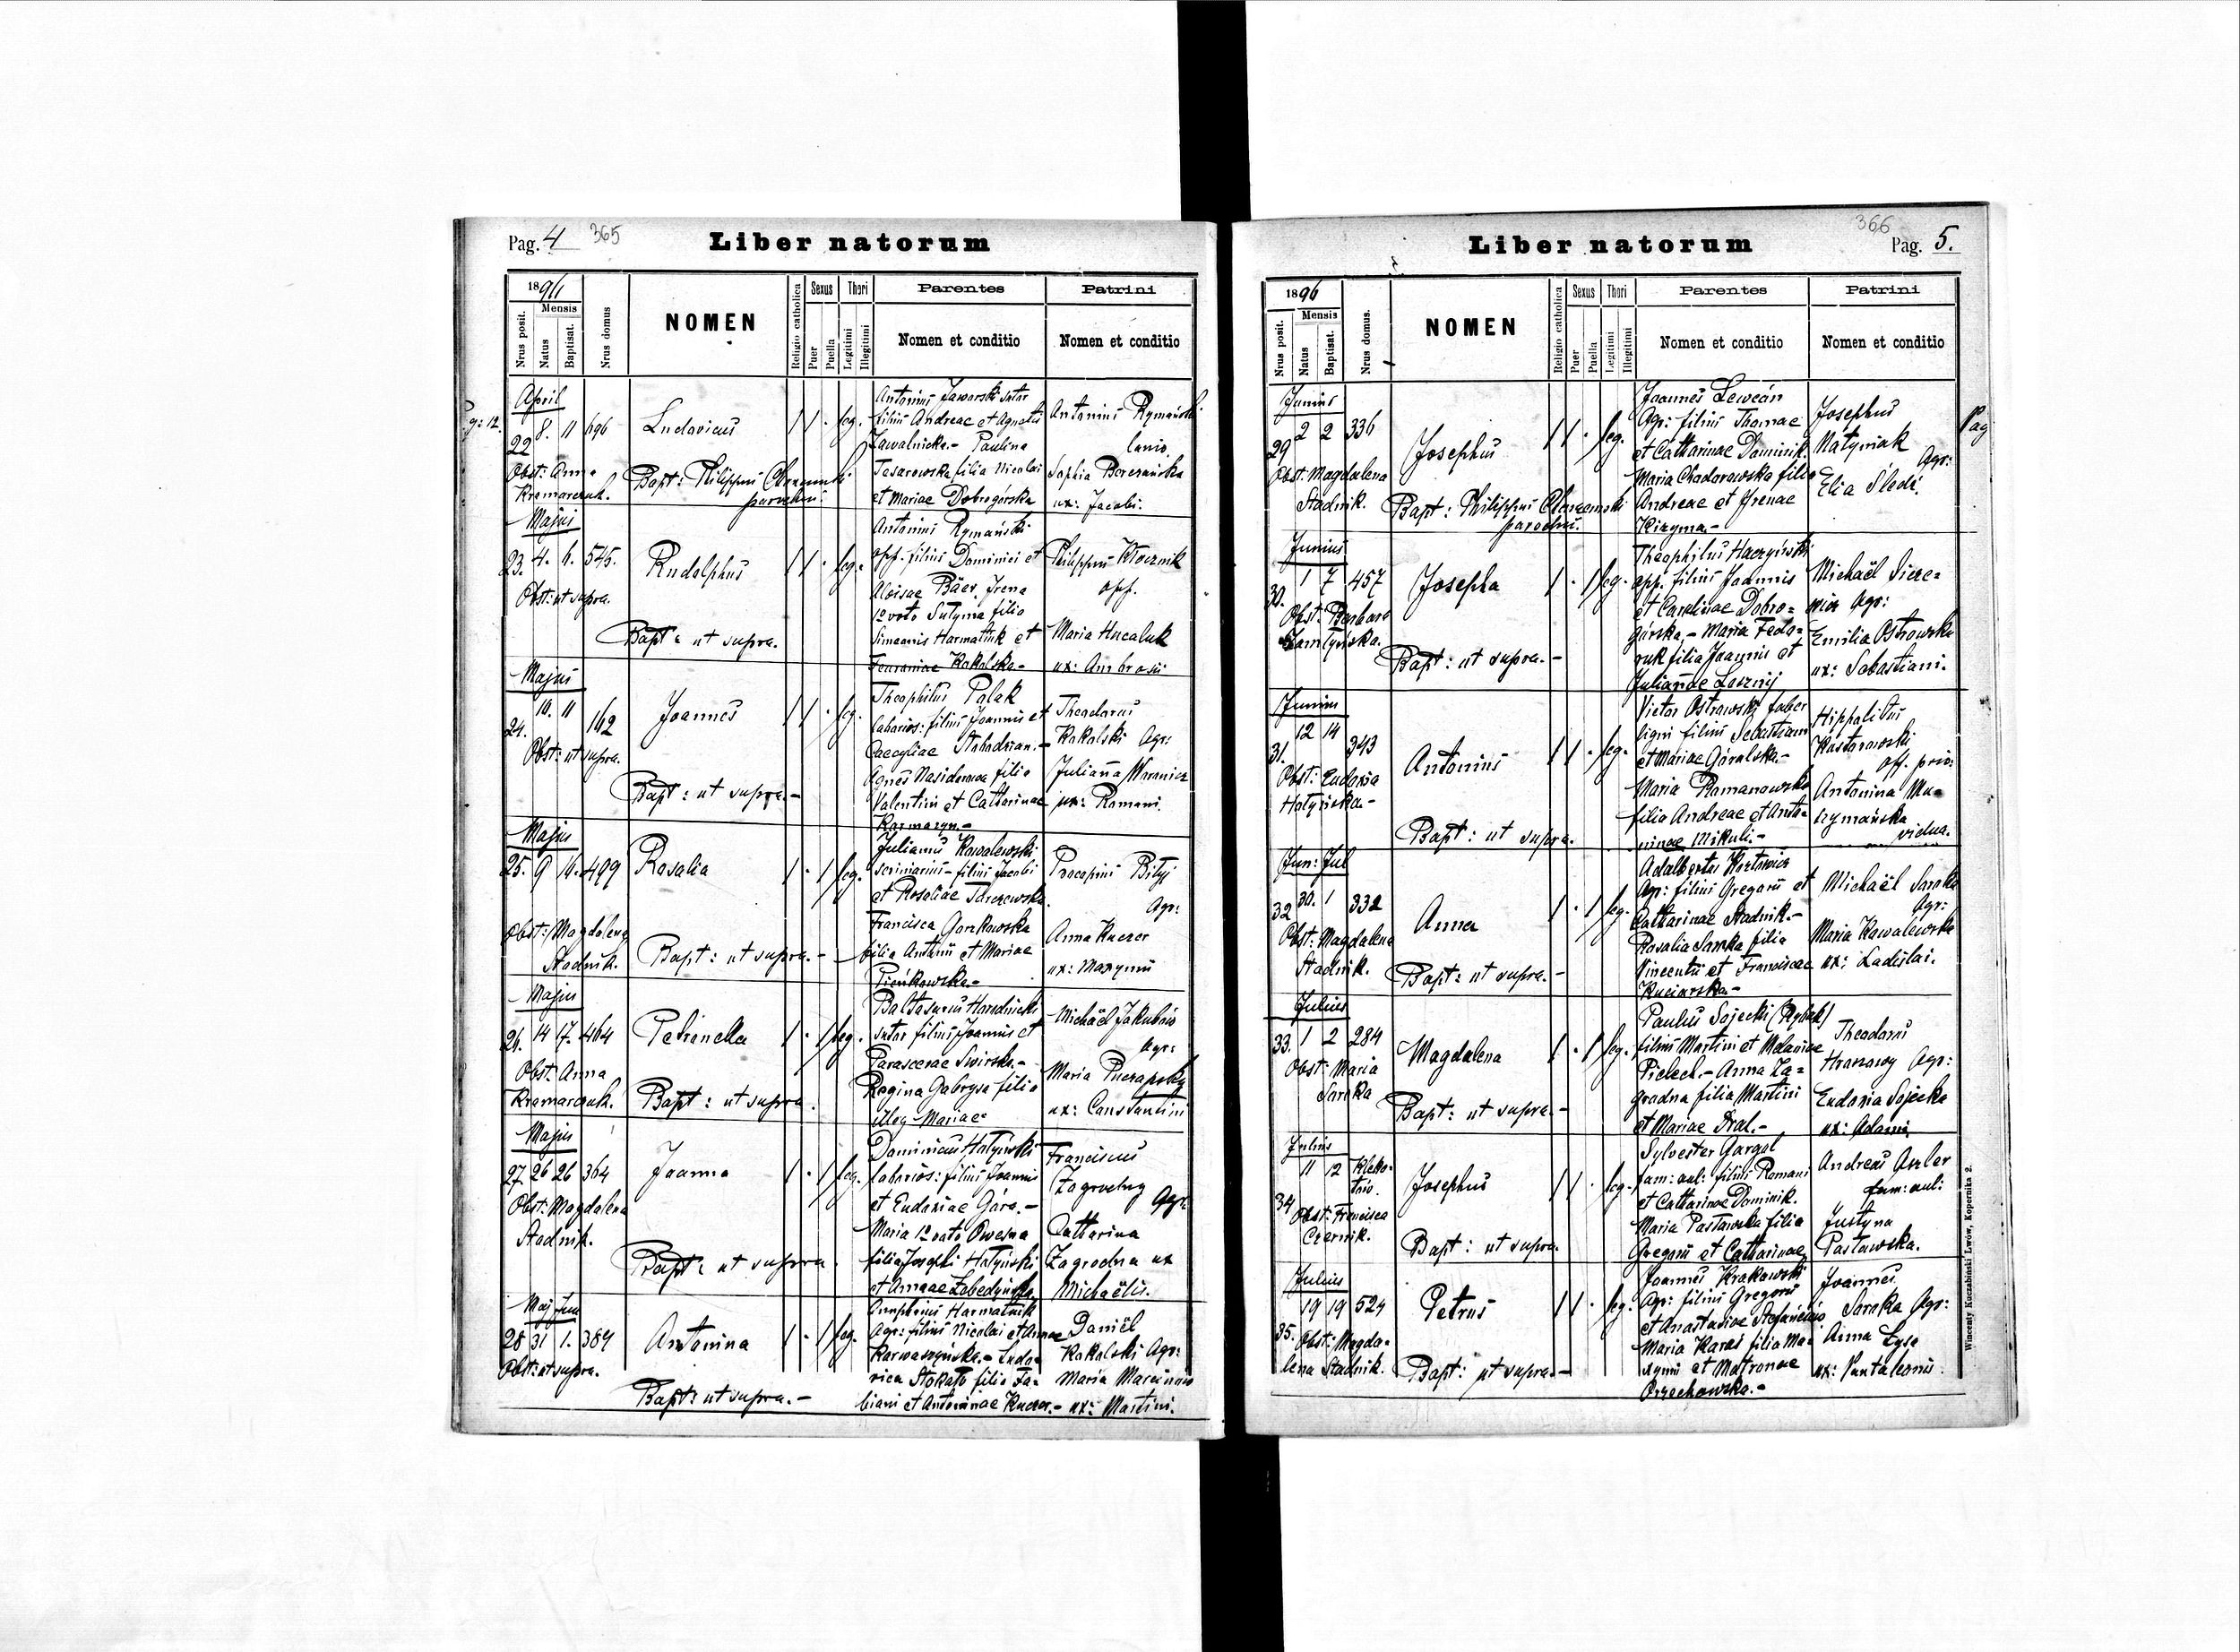 Pag. 4 365
Liber natorum
1896
Mensis
Nrus posit.
Natus
Baptisat.
Nrus domus
NOMEN
Religio catholica
Sexus
Puer
Puella
Thori
Legitimi
Illegitimi
Parentes
Nomen et conditio
Patrini
Nomen et conditio
April
22 8. 11 696
Obst: Anna
Kramarczuk.
Ludovicus
Bapt: Philippus
parochus.
leg.
Antonius Jaworski sutor
filius Andreae et Agnetis
Zawalnicka.- Paulina
Tasarowska, filia Nicolai
et Mariae Dobrogórska
Antonius Rymański
lanio.
Sophia Berezańska
ux: Jacobi.
Majus
23. 4. 6. 545.
Obst: ut supra.
Rudolphus
Bapt: ut supra.
leg.
Antonius Rymański
opp. filius Dominici et
Aloisae Bäer. Irena
1º voto Sulyma, filia
Simeonis Harmatiuk et
Kokolska-
Philippus
opp.
Maria Hucaluk
ux: Ambrosii
Majus
24. 10. 11 162
Obst: ut supra.
Joannes
Bapt: ut supra.-
leg.
Theophilus Palak
laborios: filius Joannis et
Caecyliae
Agnes filia
Valentini et Catharinae
Karmazyn.-
Theodorus
Kokolski Agr:
Julianna Woronicz
ux: Romani.
Majus
25. 9 10. 499
Obst: Magdalena
Stadnik.
Rosalia
Bapt: ut supra.-
leg.
Julianus Kowalewski
scriniarius- filius Jacobi
et Rosaliae
Francisca Gorzkowska
filia Antonii et Mariae
Pieńkowska.-
Procopius Bilyj
Agr:
Anna Kuczer
ux: Maxymi
Majus
26. 14 17. 464
Obst: Anna
Kramarczuk.
Petronella
Bapt: ut supra.
leg.
Baltasarus Harodnicki
sutor filius Joannis et
Parascevae Swirska.-
Regina Gabrysa filia
illeg Mariae
Michaël Jakubów
Agr:
Maria
ux: Constantini
Majus
27. 26 26 364
Obst: Magdalena
Stadnik.
Joanna
Bapt: ut supra.
leg.
Dominicus Hołyński
laborios: filius Joannis
et Eudoxiae Góra.-
Maria 1º voto Owesna
filia Josephi Hołyński
et Annae Łebedyńska
Franciscus
Zagrodny Agr:
Catharina
Zagrodna ux
Michaëlis.
Maj Jun
28 31 1. 384
Obst: ut supra.
Antonina
Bapt: ut supra.-
leg.
Onuphrius Harmatiuk
Agr: filius Nicolai et Annae
Karwaszyńska.- Ludo-
vica filia Fa-
biani et Antoninae Kuczer.-
Daniël
Kokolski Agr:
Maria Marcinów
ux: Martini.
366
Liber natorum
Pag. 5.
1896
Mensis
Nrus posit.
Natus
Baptisat.
Nrus domus.
NOMEN
Religio catholica
Sexus
Puer
Puella
Thori
Legitimi
Illegitimi
Parentes
Nomen et conditio
Patrini
Nomen et conditio
Junius
29 2 2 336
Obst: Magdalena
Stadnik.
Josephus
Bapt: Philippus
parochus.
leg.
Joannes
Agr: filius Thomae
et Catharinae Dominik
Maria Chodorowska filia
Andreae et Irenae
Kizyma.-
Josephus
Matyniak
Agr:
Elia Śledź.
Pag
Junius
30. 1 7 457
Obst: Barbara
Josepha
Bapt: ut supra.-
leg.
Theophilus
opp. filius Joannis
et Carolinae Dobro-
górska.- Maria Fedo-
ruk filia Joannis et
Julianae
Michaël
Agr:
Emilia Ostrowska
ux: Sebastiani.
Junius
31. 12 14 343
Obst: Eudoxia
Hołyńska.-
Antonius
Bapt: ut supra.
leg.
Victor Ostrowski faber
ligni filius Sebastiani
et Mariae Góralska.-
Maria Romanowska
filia Andreae et Anto-
ninae Mikuli.-
Hippolitus
off. priv:
Antonina
vidua.
Jun: Jul
32 30. 1 332
Obst: Magdalena
Stadnik.
Anna
Bapt: ut supra.-
leg.
Adalbertus
Agr: filius Gregorii et
Catharinae Stadnik.-
Rosalia Soroka filia
Vincentii et Franciscae
Michaël Soroka
Agr:
Maria Kowalewska
ux: Ladislai.
Julius
33. 1 2 284
Obst: Maria
Soroka
Magdalena
Bapt: ut supra.-
leg.
Paulus Sojecki (Rybak)
filius Martini et Melaniae
Pielech.- Anna Za-
grodna filia Martini
et Mariae Dral.-
Theodorus
Agr:
Eudoxia Sojecka
ux: Adami
Julius
34 11 12
Obst: Francisca
Czernik.
Josephus
Bapt: ut supra.
leg.
Sylvester Gargol
fam: aul: filius Romani
et Catharinae Dominik.
Maria Pastawska filia
Gregorii et Catharinae
Andreas
fam: aul:
Justyna
Pastawska.
Julius
35. 19 19 524
Obst: Magda-
lena Stadnik.
Petrus
Bapt: ut supra.-
leg.
Joannes Krakowski
Agr: filius Gregorii
et Anastasiae
Maria Karaś filia Ma-
xymi et Matronae
Orzechowska.-
Joannes
Soroka Agr:
Anna Łysa
ux: Pantaleonis.
Wincenty Kuczabiński Lwów, Kopernika 2.